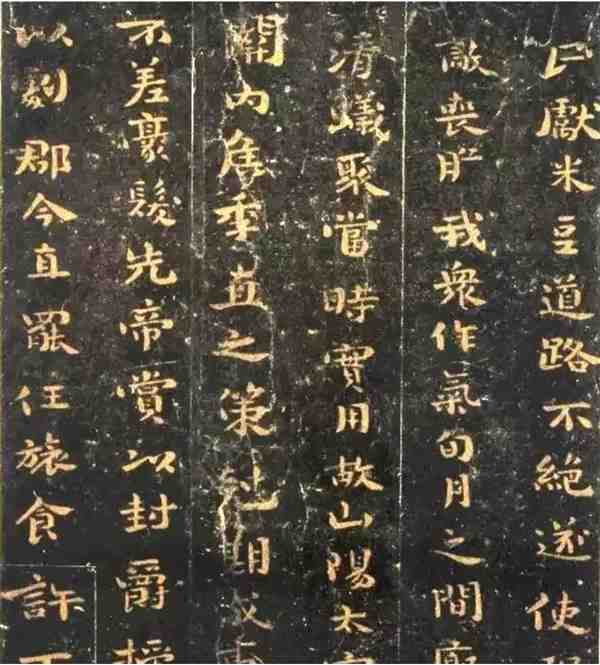 獻米豆道路不絕遂使
敵喪膽我衆作氣旬月之間廓
清蟻聚當時實用故山陽太守
關內侯季直之策尅期成事
不差豪髮先帝賞以封爵授
以劇郡今直罷任旅食許下